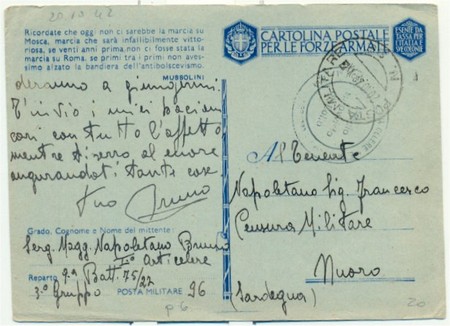 20.10.42
Ricordate che oggi non ci sarebbe la marcia su
Mosca, marcia che sarà infallibilmente vitto-
riosa, se venti anni prima, non ci fosse stata la
marcia su Roma, se primi tra i primi non aves-
simo alzato la bandiera dell'antibolscevismo.
MUSSOLINI
CARTOLINA POSTALE
PER LE FORZE ARMATE
ESENTE DA
TASSA PER
L'ITALIA E
SPEDIZIONE
a giungermi.
T'invio i miei bacioni
cari con tutto l'affetto
mentre ti serro al cuore
augurandoti tante cose
Tuo Bruno
Grado, Cognome e Nome del mittente:
Serg. Magg. Napoletano Bruno
II° Articelere
Reparto 9ª Batt. 75/27
3° Gruppo POSTA MILITARE 96
Al Tenente
Napoletano Sig. Francesco
Censura Militare
Nuoro
(Sardegna)
20